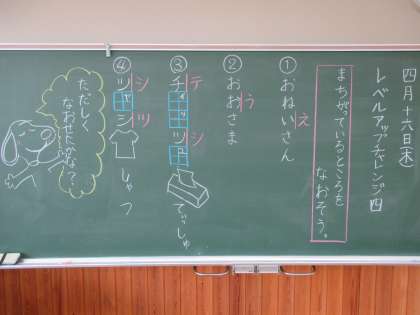 四月十六日(木)
レベルアップチャレンジ四
まちがっているところを
なおそう。
① おねいさん
え
② おおさま
う
③ チィッツュ
テ シ
てぃっしゅ
④ ツャシ
シ ツ
しゃつ
ただしく
なおせたかな?